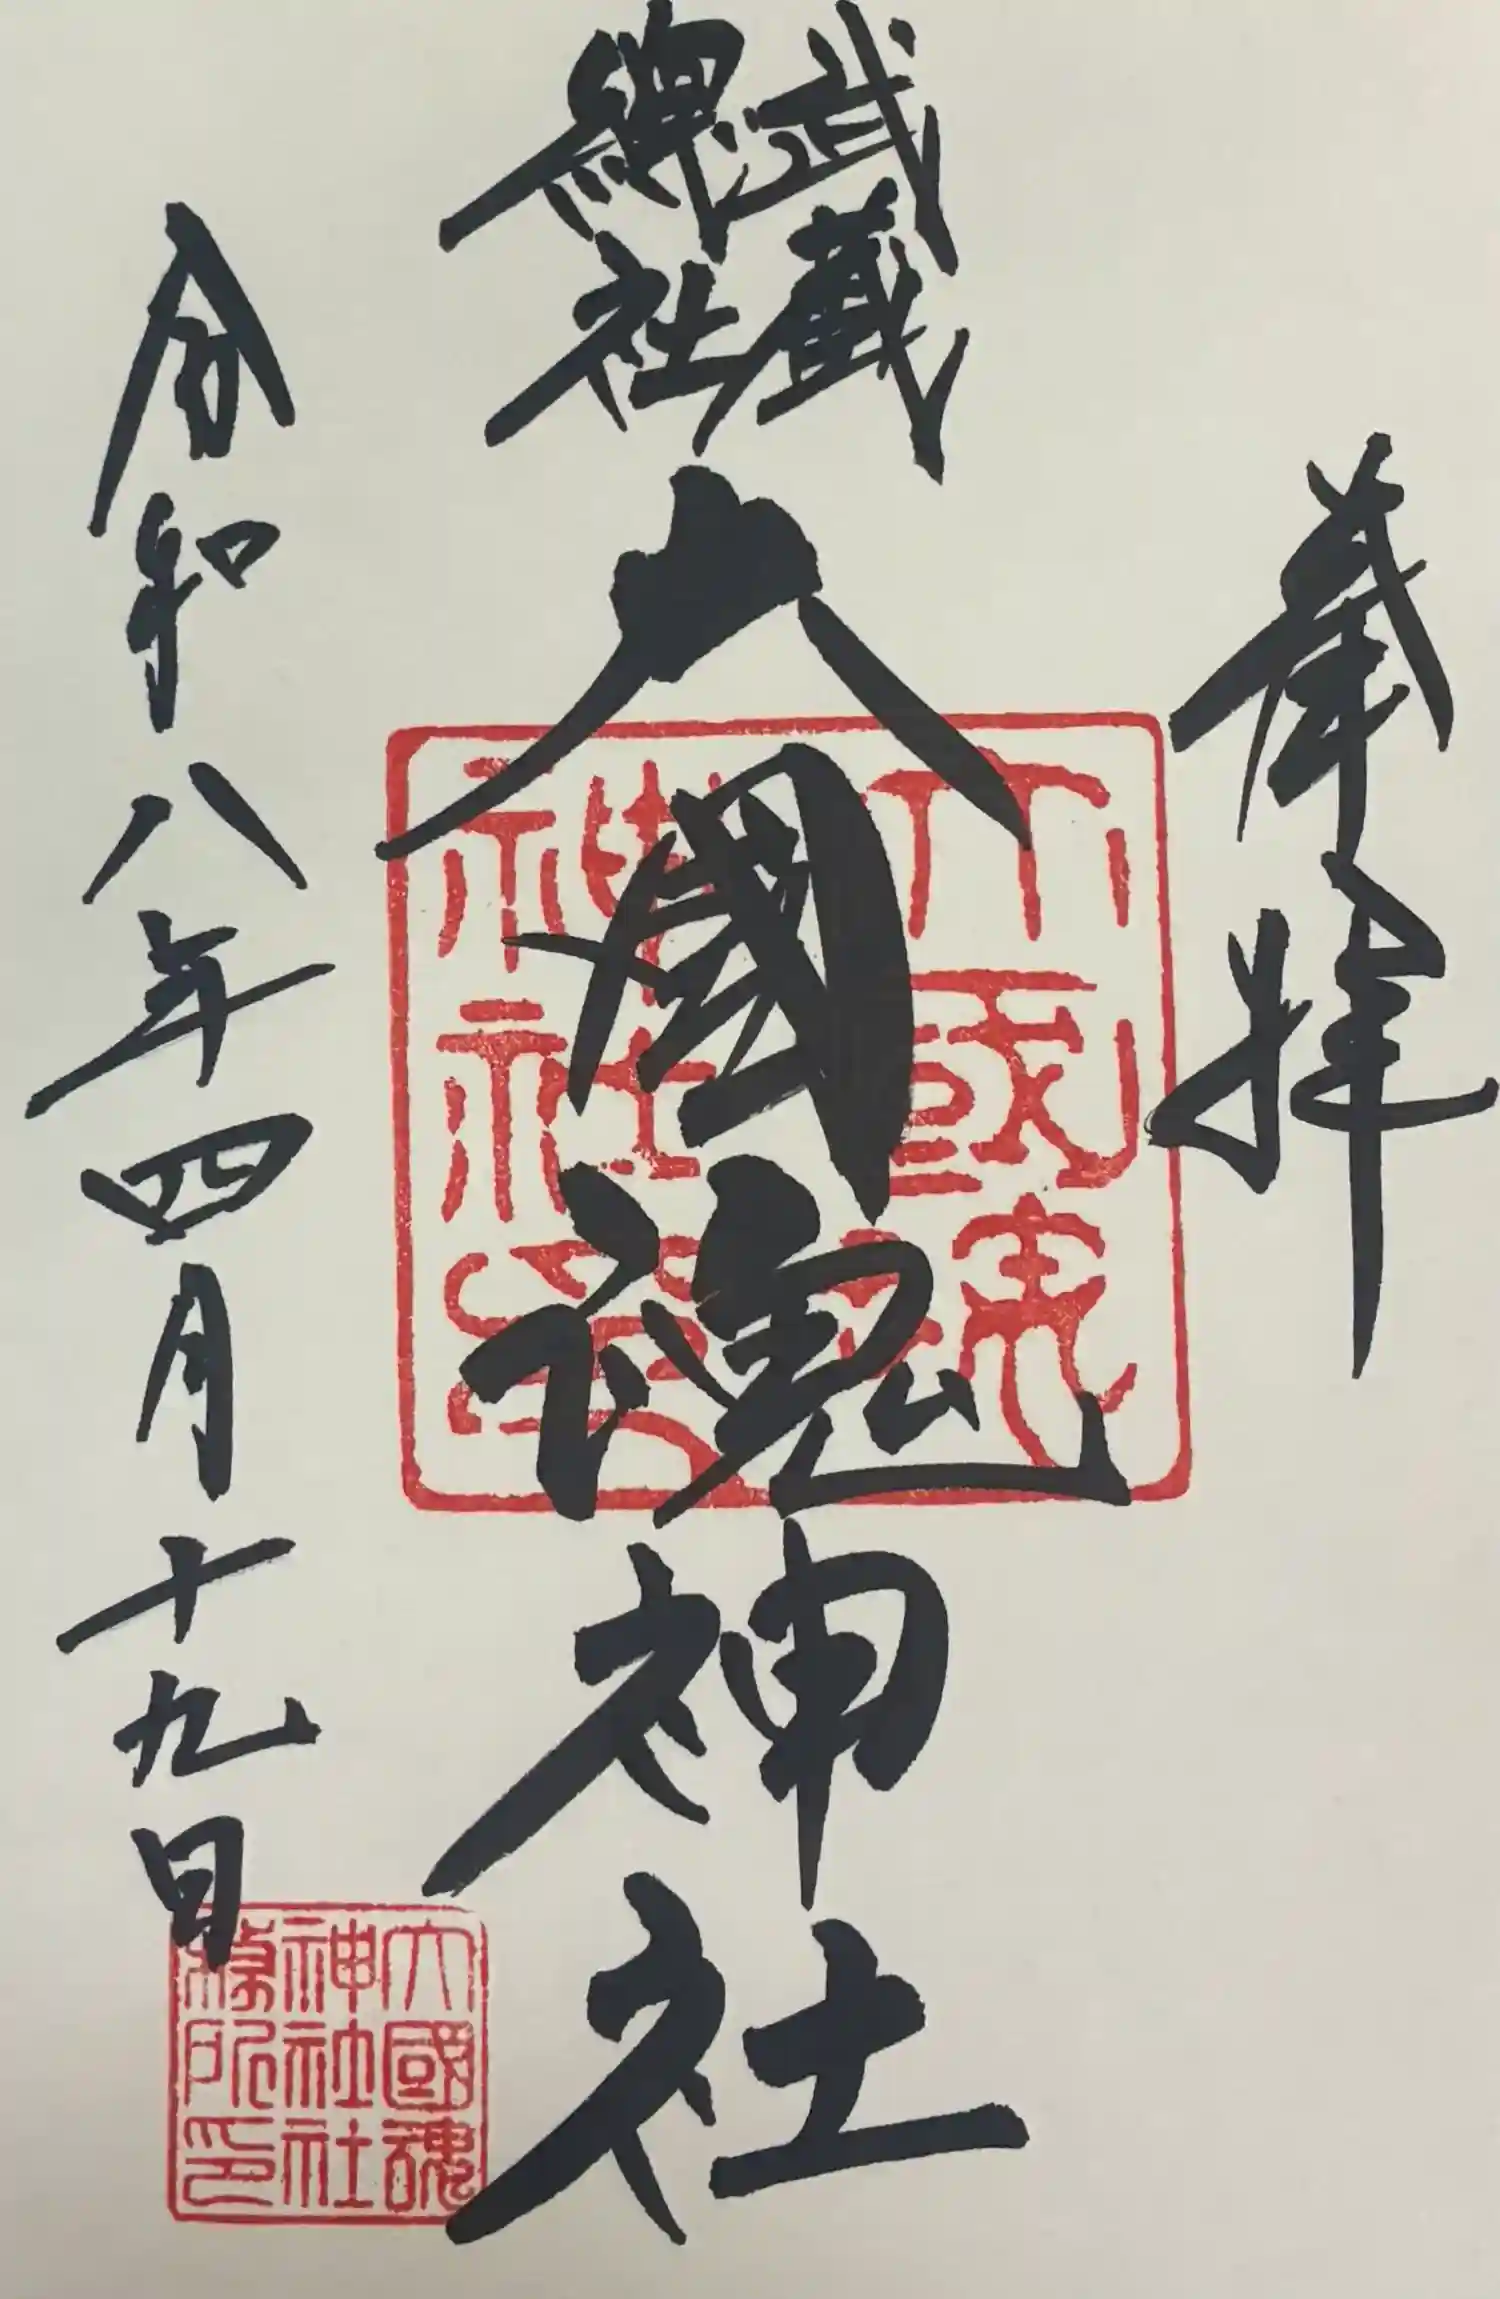 奉拝
武蔵
総社
大國魂神社
令和八年四月十九日
大國魂
神社印
大國魂
神社社
務所印